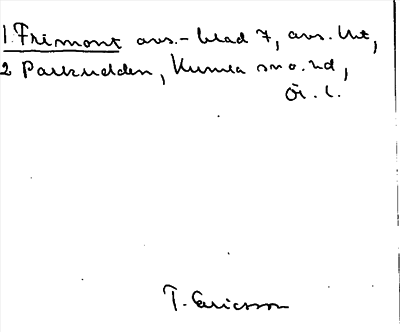 1. Frimont avs.-blad 7, avs. Ut,
2 Parkudden, Kumla sn o. hd,
Ör. l.
T. Ericsson